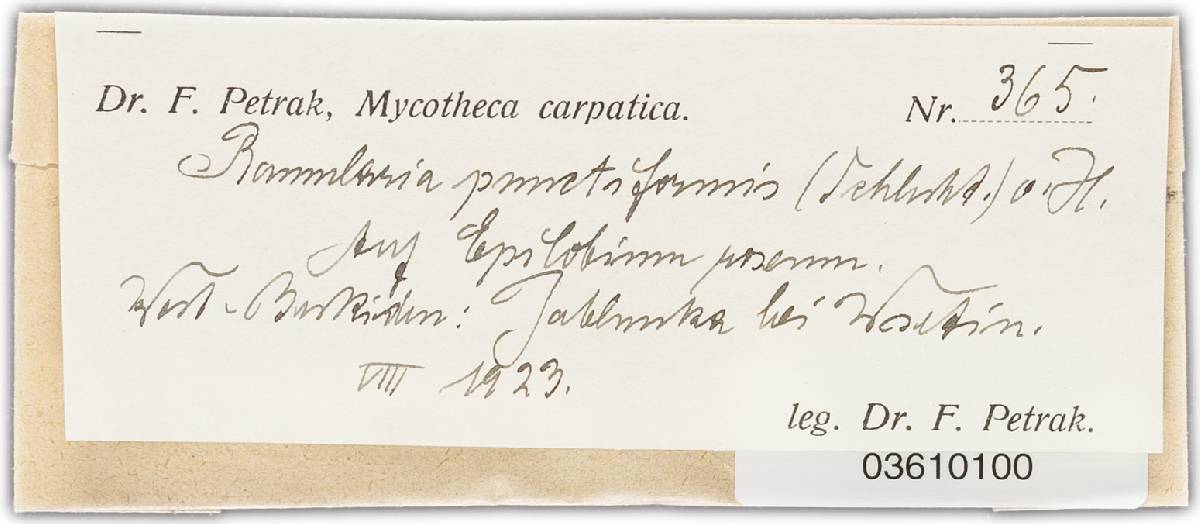 Dr. F. Petrak, Mycotheca carpatica. Nr. 365.
Ramularia punctiformis (Schlecht.) v. H.
Auf Epilobium roseum.
West-Beskiden: Jablunka bei Wsetin.
VIII 1923.
leg. Dr. F. Petrak.
03610100